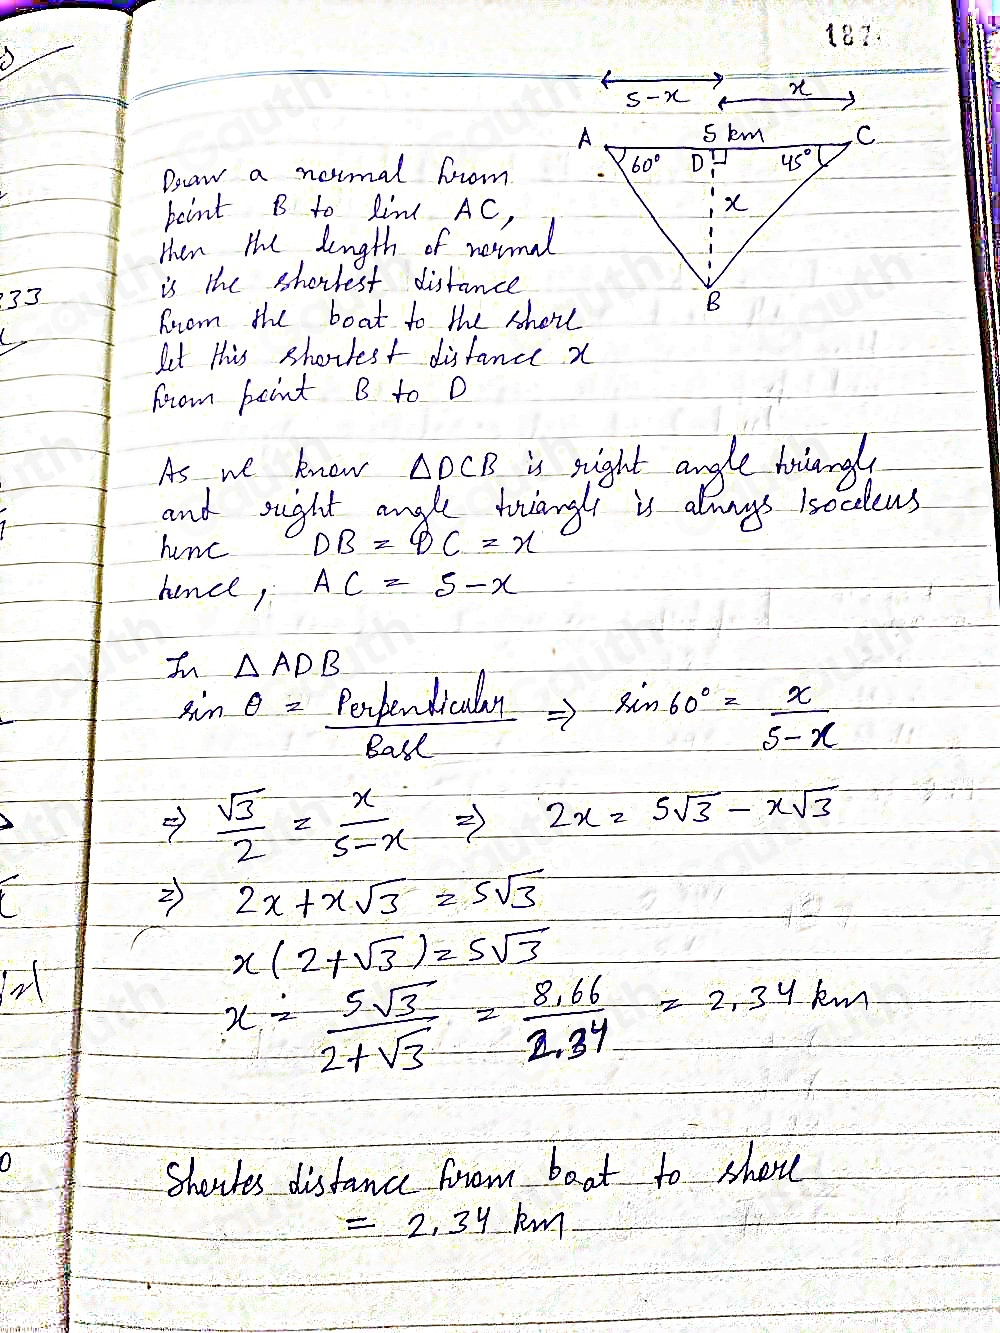 187
5-x
x
A
5 km
C
60°
D
45°
x
B
Draw a normal from
point B to line AC,
then the length of normal
is the shortest distance
from the boat to the shore
let this shortest distance x
from point B to D
333
As we know △DCB is right angle triangle
and right angle triangle is always Isoceleus
henc DB = DC = x
hence, AC = 5-x
In △ADB
sin θ = Perpendicular/Base ⇒ sin 60° = x/5-x
⇒ √3/2 = x/5-x ⇒ 2x = 5√3 - x√3
⇒ 2x+x√3 = 5√3
x(2+√3) = 5√3
x = 5√3/2+√3 = 8.66/2.34 = 2.34 km
Shortes distance from boat to shore
= 2.34 km